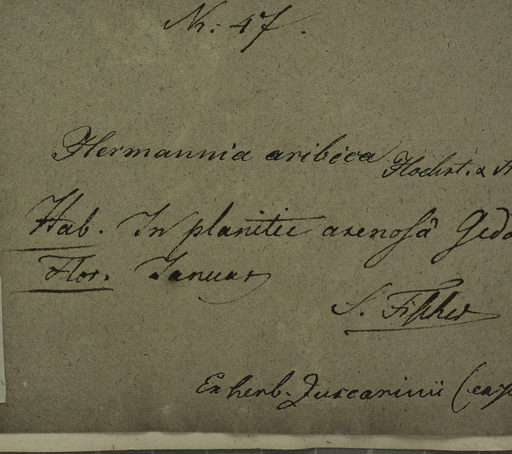 Nr: 47.
Hermannia aribica Hochst. &
Hab. In planitie arenosâ Ged
Flor. Januar
S. Fischer
Ex herb. Zuccarinii